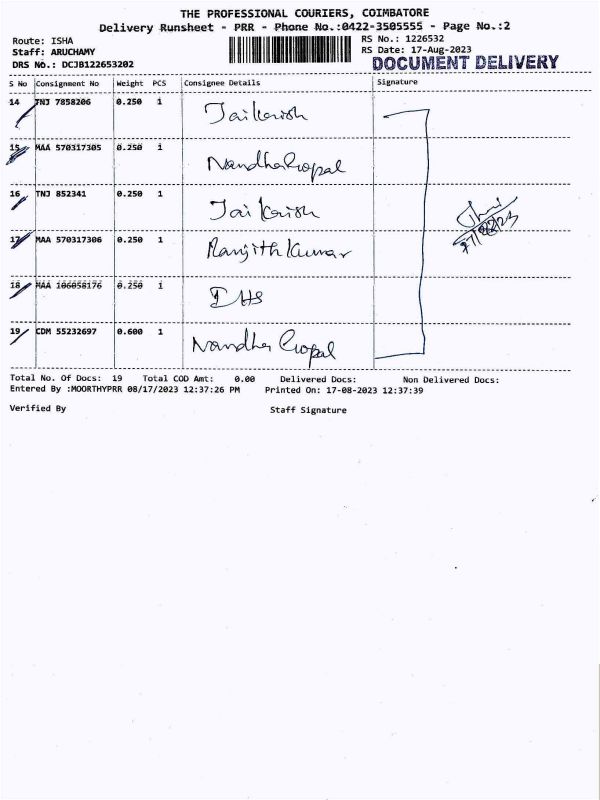 THE PROFESSIONAL COURIERS, COIMBATORE
Delivery Runsheet - PRR - Phone No.:0422-3505555 - Page No.:2
Route: ISHA
RS No.: 1226532
Staff: ARUCHAMY
RS Date: 17-Aug-2023
DRS No.: DCJB122653202
DOCUMENT DELIVERY
S No Consignment No Weight PCS Consignee Details Signature
14 TNJ 7858206 0.250 1 Jaikrish
15 MAA 570317305 0.250 1 NandhaGopal
16 TNJ 852341 0.250 1 Jaikrish
17 MAA 570317306 0.250 1 Ranjith Kumar
18 MAA 106058176 0.250 1 IHS
19 CDM 55232697 0.600 1 Nandha Gopal
Total No. Of Docs: 19 Total COD Amt: 0.00 Delivered Docs: Non Delivered Docs:
Entered By :MOORTHYPRR 08/17/2023 12:37:26 PM Printed On: 17-08-2023 12:37:39
Verified By Staff Signature